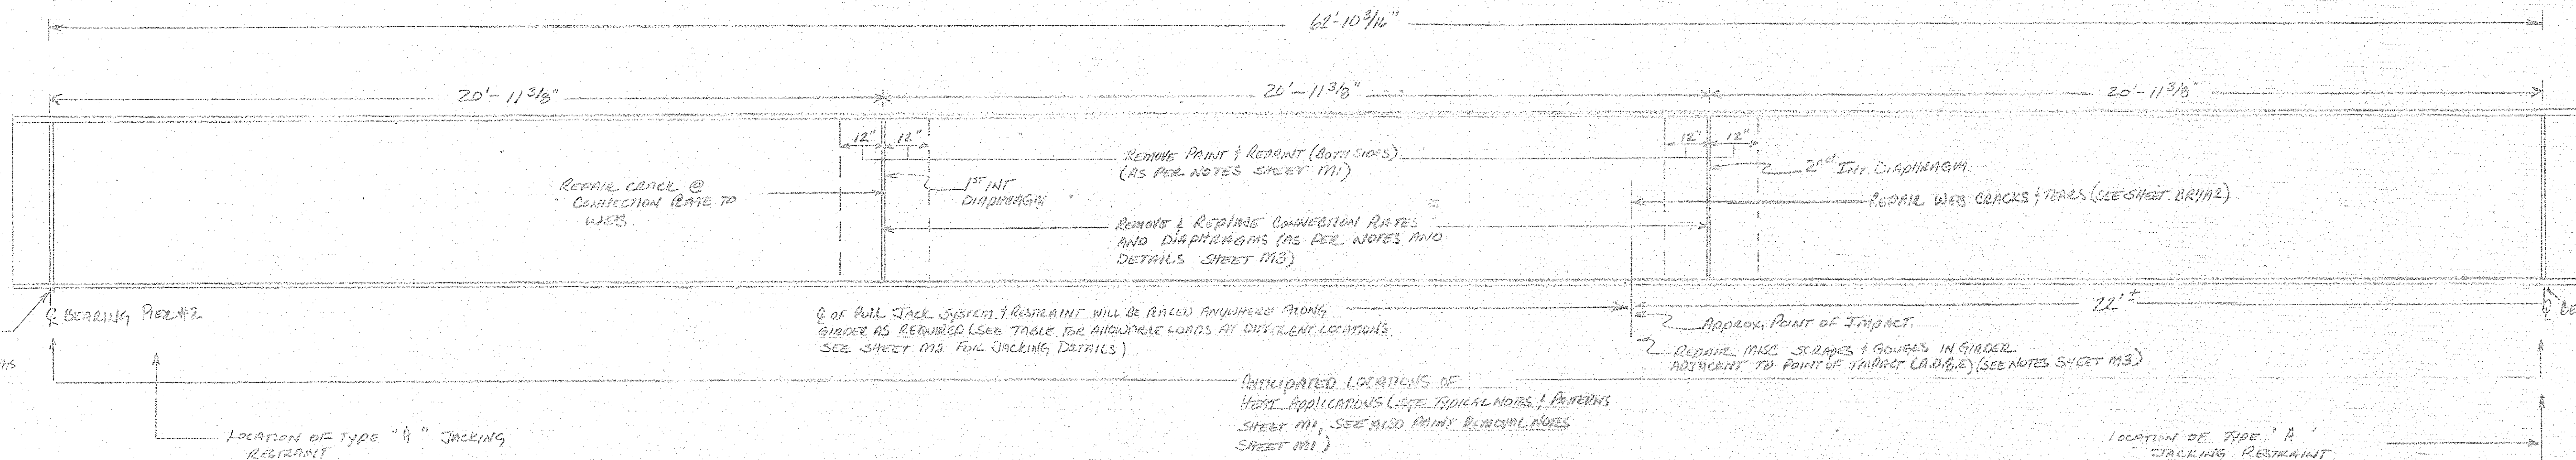 62'-10 3/16"
20'-11 3/8"
20'-11 3/8"
20'-11 3/8"
12"
12"
12"
12"
REMOVE PAINT & REPAINT (BOTH SIDES)
(AS PER NOTES SHEET M1)
2nd INT. DIAPHRAGM
REPAIR CRACK @
CONNECTION PLATE TO
WEB
1ST INT
DIAPHRAGM
REPAIR WEB CRACKS & TEARS (SEE SHEET BR4A2)
REMOVE & REPLACE CONNECTION PLATES
AND DIAPHRAGMS (AS PER NOTES AND
DETAILS SHEET M3)
℄ BEARING PIER #2
℄ OF PULL JACK SYSTEM & RESTRAINT WILL BE PLACED ANYWHERE ALONG
GIRDER AS REQUIRED (SEE TABLE FOR ALLOWABLE LOADS AT DIFFERENT LOCATIONS
SEE SHEET M2 FOR JACKING DETAILS)
22'±
℄ BE
APPROX. POINT OF IMPACT.
REPAIR MISC SCRAPES & GOUGES IN GIRDER
ADJACENT TO POINT OF IMPACT (A.O.B.E) (SEE NOTES SHEET M3)
ANTICIPATED LOCATIONS OF
HEAT APPLICATIONS (SEE TYPICAL NOTES & PATTERNS
SHEET M1, SEE ALSO PAINT REMOVAL NOTES
SHEET M1)
LOCATION OF TYPE "A" JACKING
RESTRAINT
LOCATION OF TYPE "A"
JACKING RESTRAINT